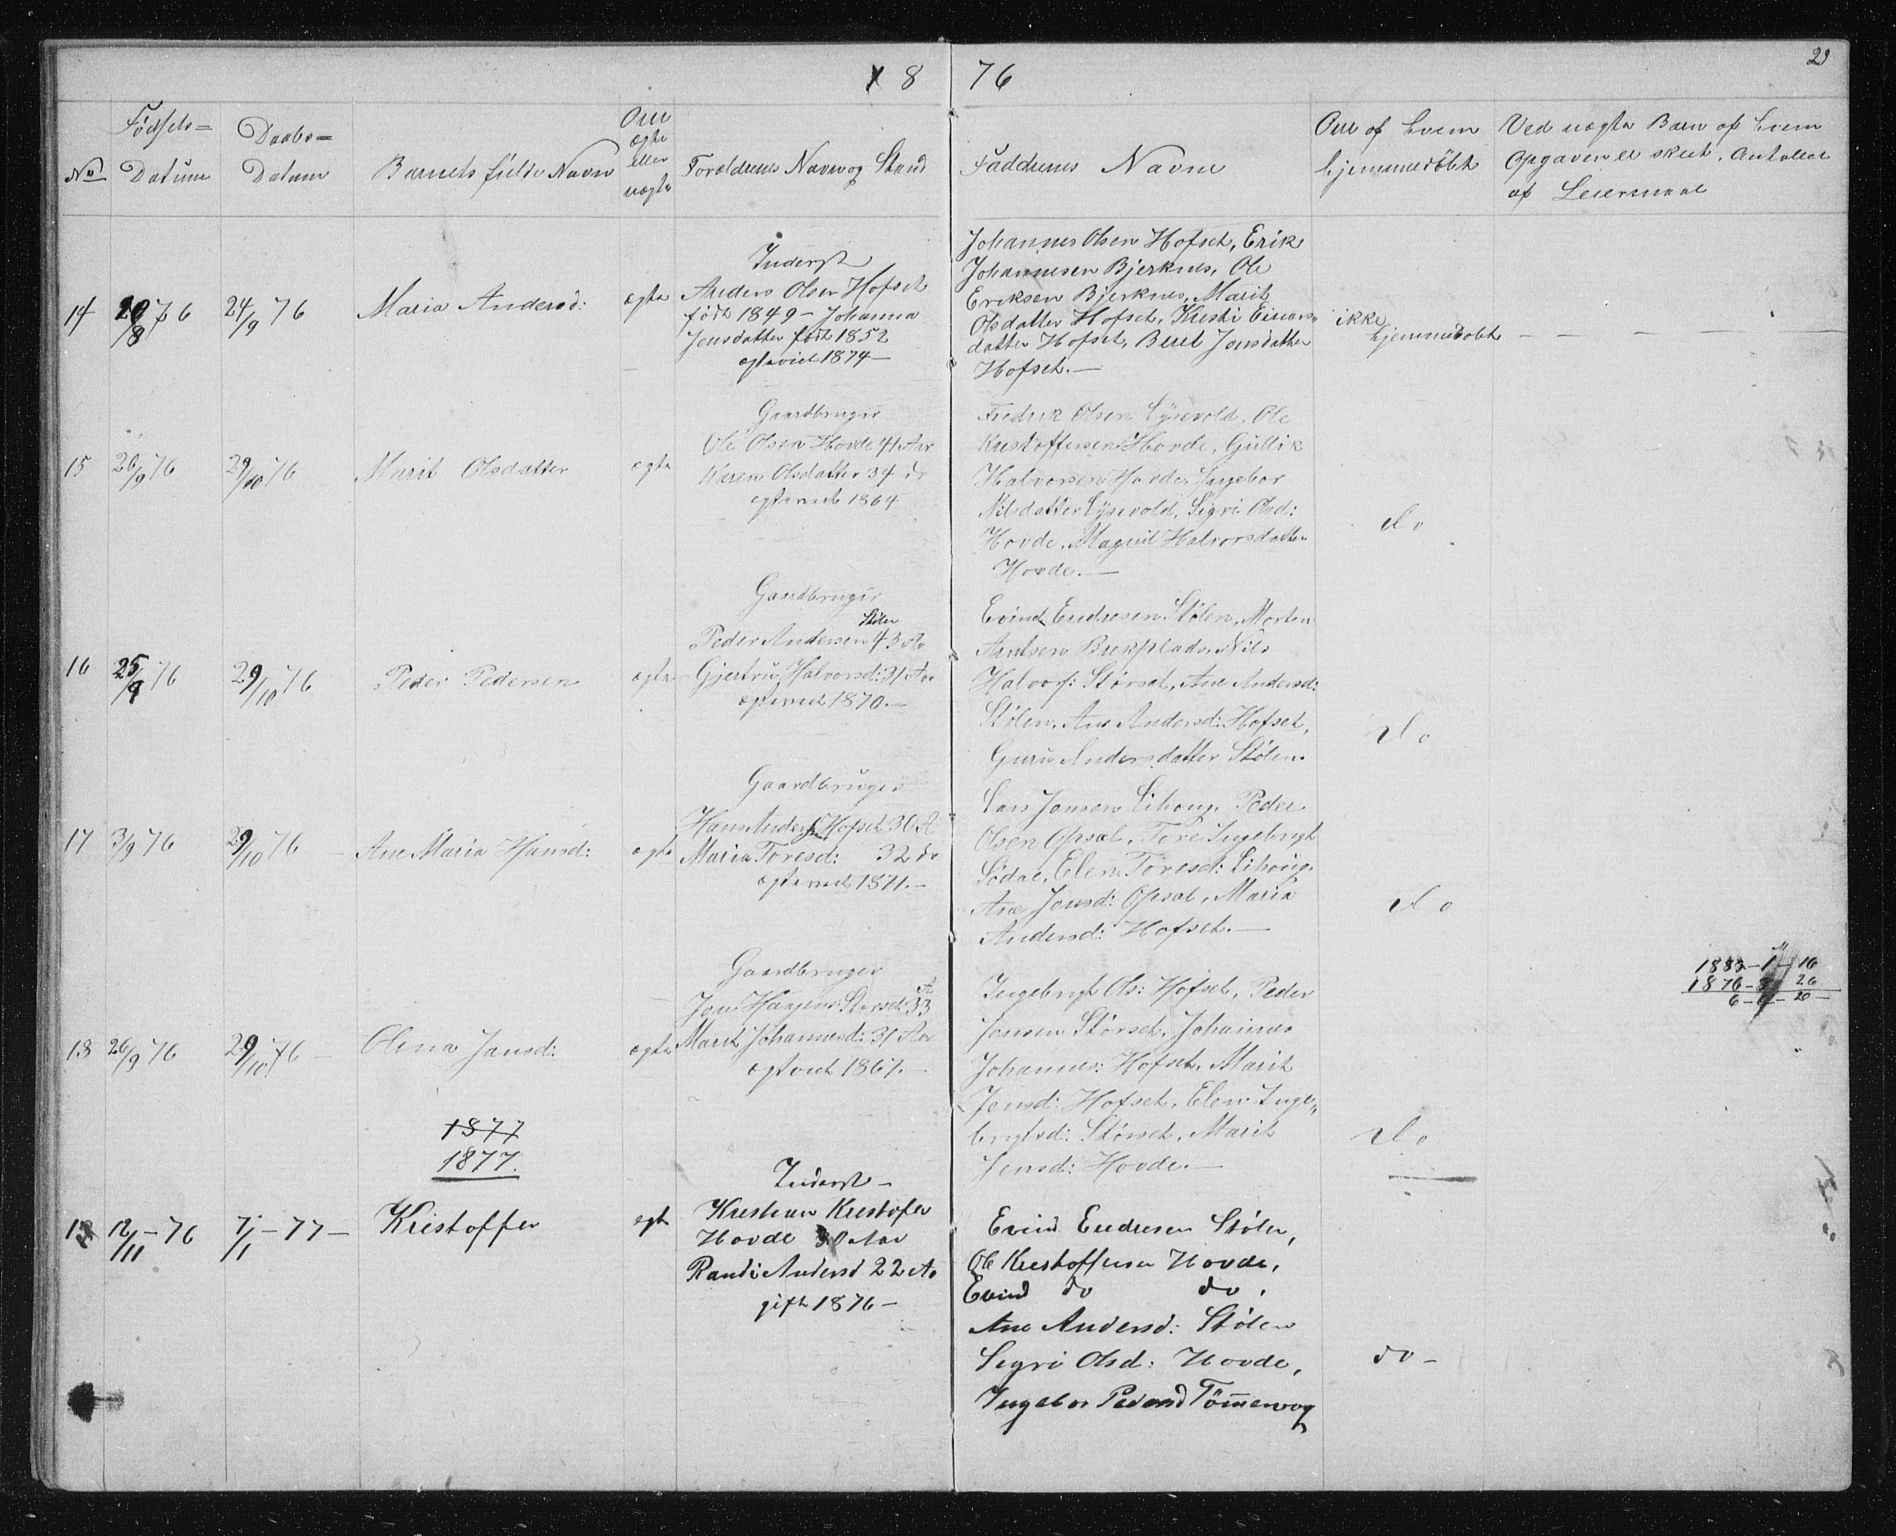 1876
29
Fødsels=
Daabs=
Om
ægte
eller
uægte
No Datum Datum Barnets fulde Navn Forældrenes Navn og Stand
Faddrenes Navne
Om of hvem
hjemmedøbt
Ved uægte Barn af hvem
Opgaven er skeet, Antallet
af Leiermaal
Inderst
14 /8 76 24/9 76 Maria Andersd: ægte Anders Olsen Hofset
født 1849 – Johanna
Jonsdatter født 1852
egteviet 1874 –
Johannes Olsen Hofset, Erik
Johannesen Bjerknes, Ole
Eriksen Bjerknes, Marit
Olsdatter Hofset, Kristi Einars„
datter Hofset, Beret Jonsdatter
Hofset. –
ikke
hjemmedøbt – – – – –
Gaardbruger
15 26/9 76 29/10 76 Marit Olsdatter ægte Ole Olsen Hovde 41 Aar
Karen Olsdatter 34 do
egteviet 1864
Fredrik Olsen Lysevold, Ole
Kristoffersen Hovde, Gullik
Halvorsen Hovde, Ingebor
Nilsdatter Lysevold, Sigri Olsd:
Hovde, Magnil Halvorsdatter
Hovde. –
do
Gaardbruger
Stølen
16 25/9 76 29/10 76 Peder Pedersen ægte Peder Andersen 43 Aar
Gjertru Halvorsd: 31 Aar
egteviet 1870. –
Evind Endresen Stølen, Morten
Arntsen Brekplads, Nils
Halvors: Størset, Ane Andersd:
Stølen, Ane Andersd: Hofset,
Guru Andersdatter Stølen.
do
Gaardbruger
17 3/9 76 29/10 76 Ane Maria Hansd: ægte Hans Anders Hofset 30 A
Maria Toresd: 32 do
egteviet 1871. –
Lars Jonsen Lihoug, Peder
Olsen Opsal, Tore Ingebrigt
Sødal, Elen Toresd: Lihoug.
Ane Jonsd: Opsal, Maria
Andersd: Hofset. –
do
1883 – 1 – 16
1876 – 8 26
6 – – 20 –
Gaardbruger
18 26/9 76 29/10 76 – Olena Jansd: ægte Jon Størset 33 A
Marit Johannesd: 31 Aar
egteviet 1867. –
Ingebrigt Ols: Hofset, Peder
Jonsen Størset, Johannes
Johannes: Hofset, Marit
Jensd: Hofset, Elen Inge„
brigtsd: Størset, Marit
Jensd: Hovde. –
do
1877
1877.
Inderst –
12/11 – 76 7/1 – 77 – Kristoffer egte Kristian Kristofer
Hovde 30 Aar
Randi Andersd 22 Aa
gift 1876 –
Evind Endresen Stølen,
Ole Kristoffersen Hovde,
Evind do do.
Ane Andersd: Stølen
Sigri Olsd: Hovde,
Ingebor Pedersd Tømmervog
do –